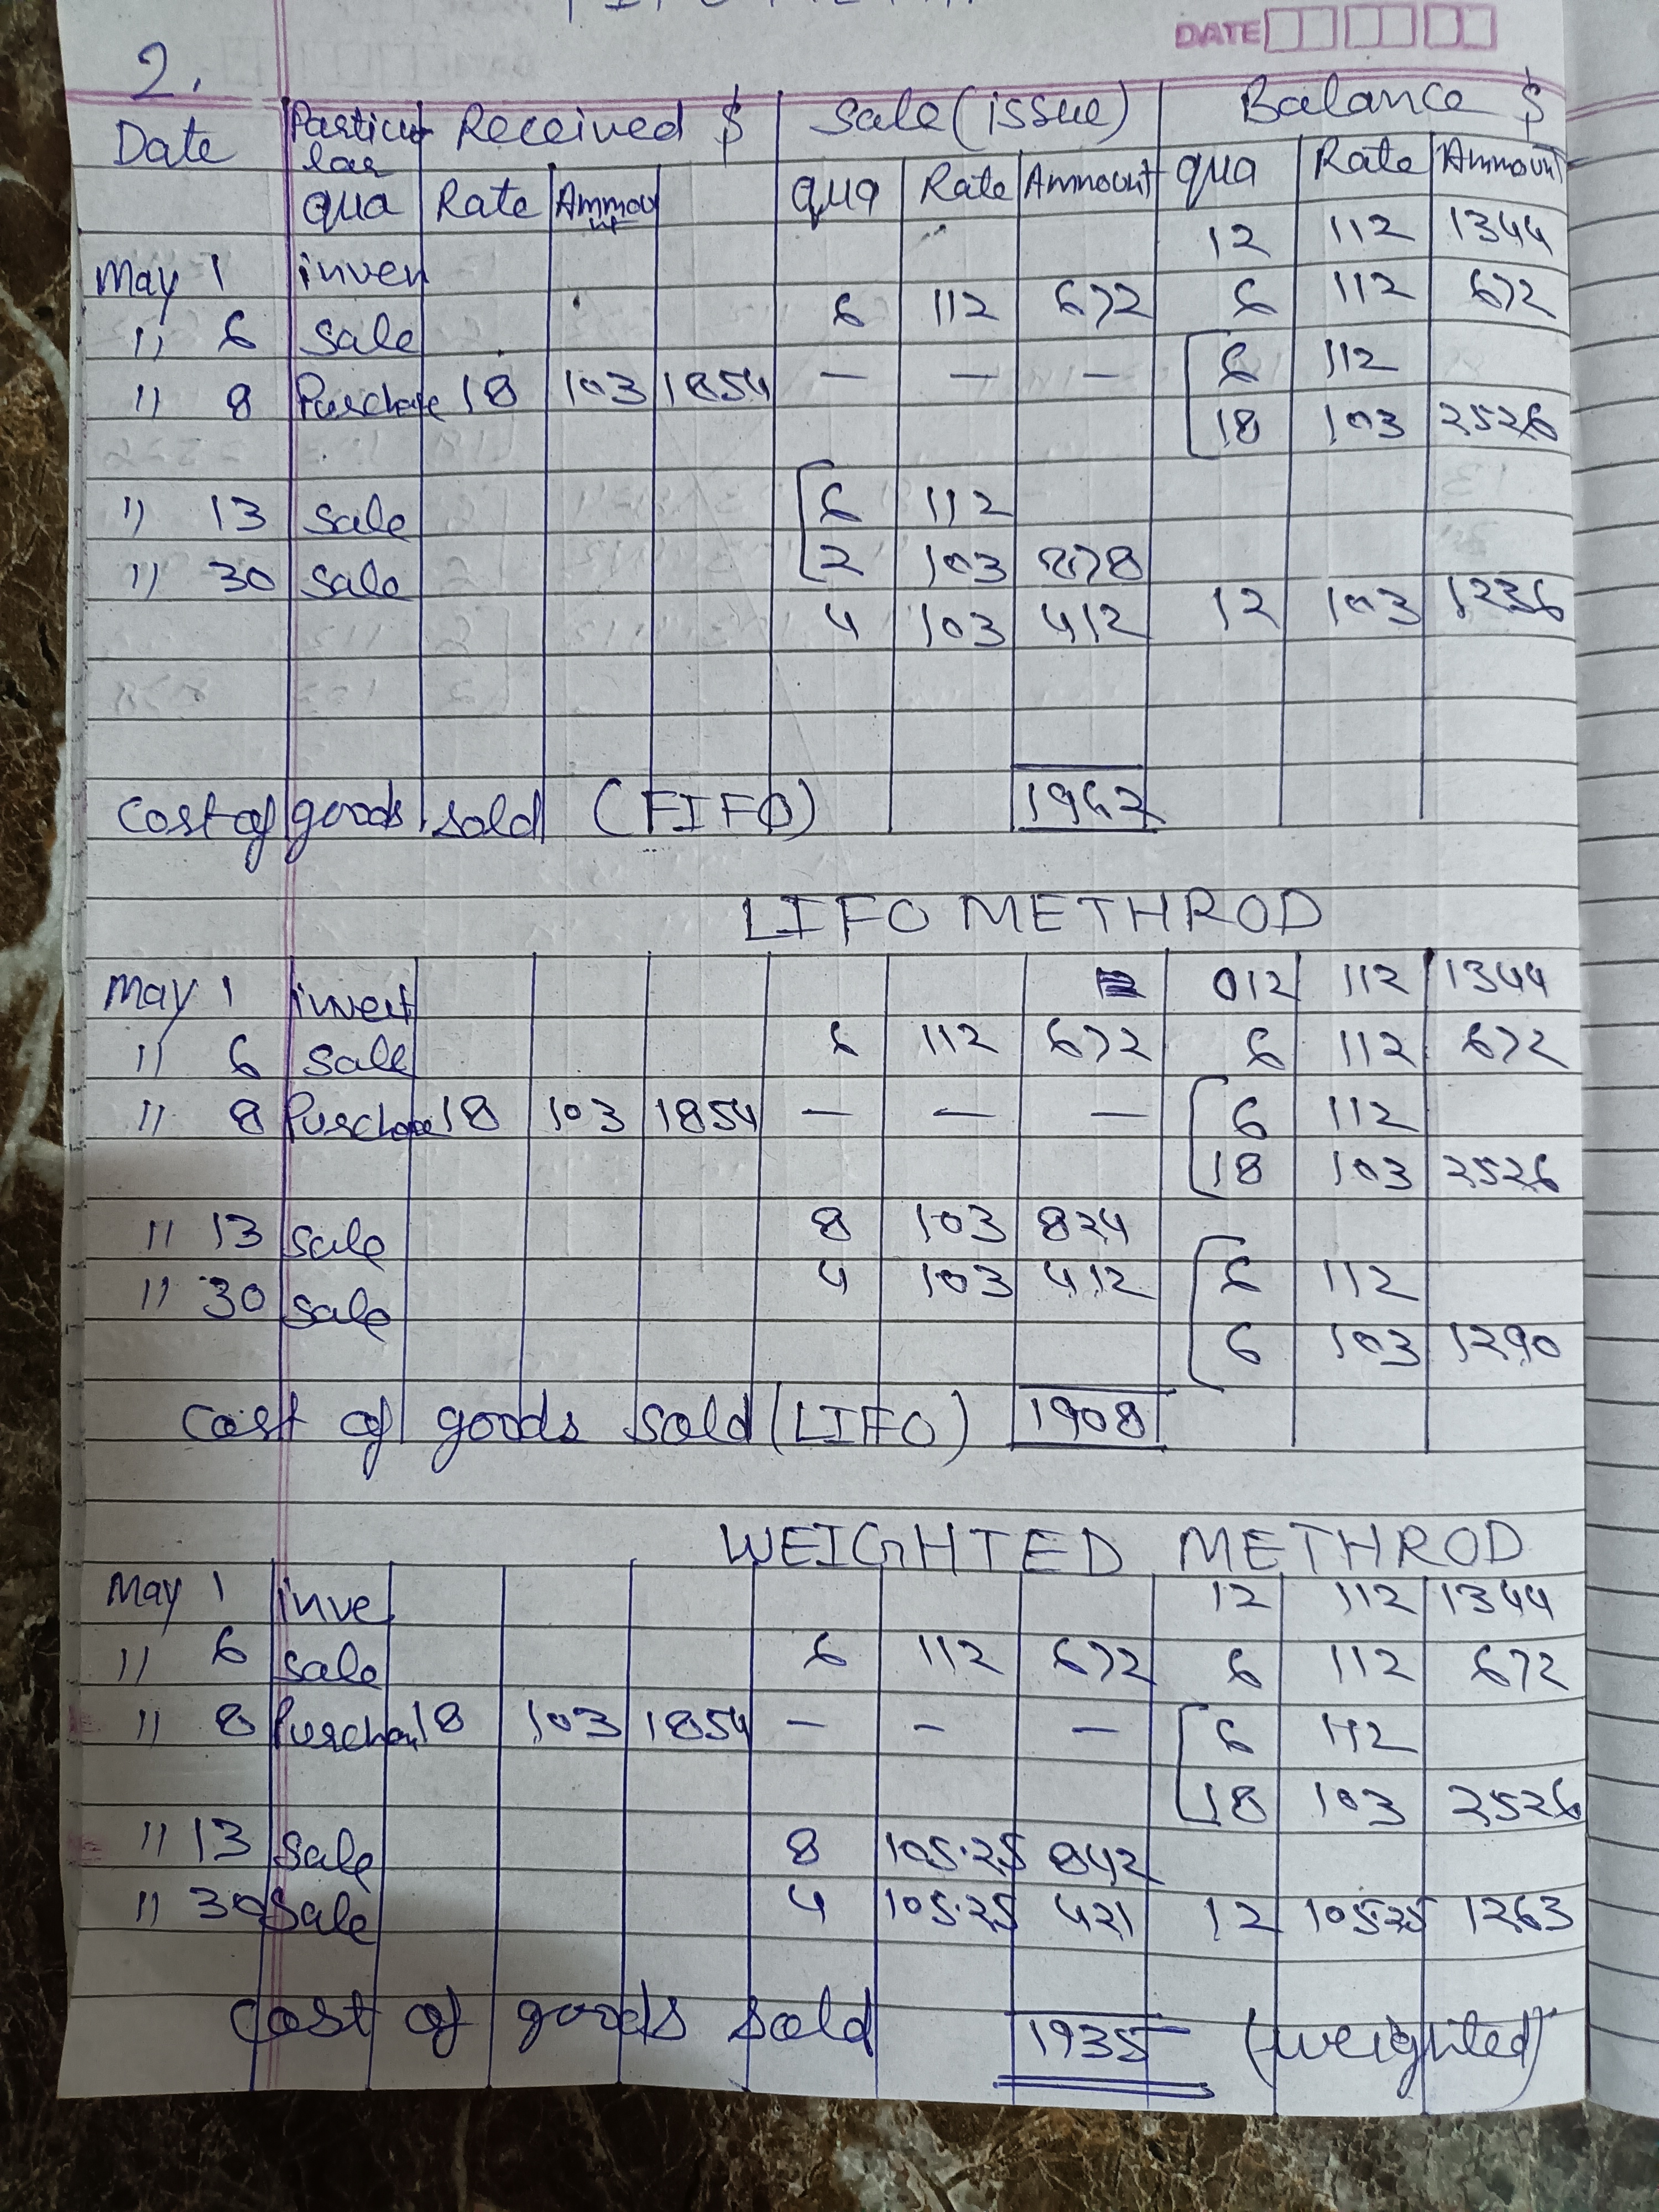 DATE
2.
Date Particu lar Received $ Sale (issue) Balance $
qua Rate Ammou nt qua Rate Ammount qua Rate Ammount
12 112 1344
May 1 inven
6 112 672 6 112 672
" 6 sale
" 8 Purchase 18 103 1854 — — — 6 112
18 103 2526
" 13 sale 6 112
2 103 878
" 30 sale
4 103 412 12 103 1236
Cost of goods sold (FIFO) 1962
LIFO METHROD
May 1 invent 012 112 1344
" 6 sale 6 112 672 6 112 672
" 8 Purchase 18 103 1854 — — — 6 112
18 103 2526
" 13 sale 8 103 824
" 30 sale 4 103 412 6 112
6 103 1290
Cost of goods sold (LIFO) 1908
WEIGHTED METHROD
May 1 inve 12 112 1344
" 6 sale 6 112 672 6 112 672
" 8 Purchan 18 103 1854 — — — 6 112
18 103 2526
" 13 sale 8 105.25 842
" 30 sale 4 105.25 421 12 105.25 1263
Cost of goods sold 1935 (weighted)